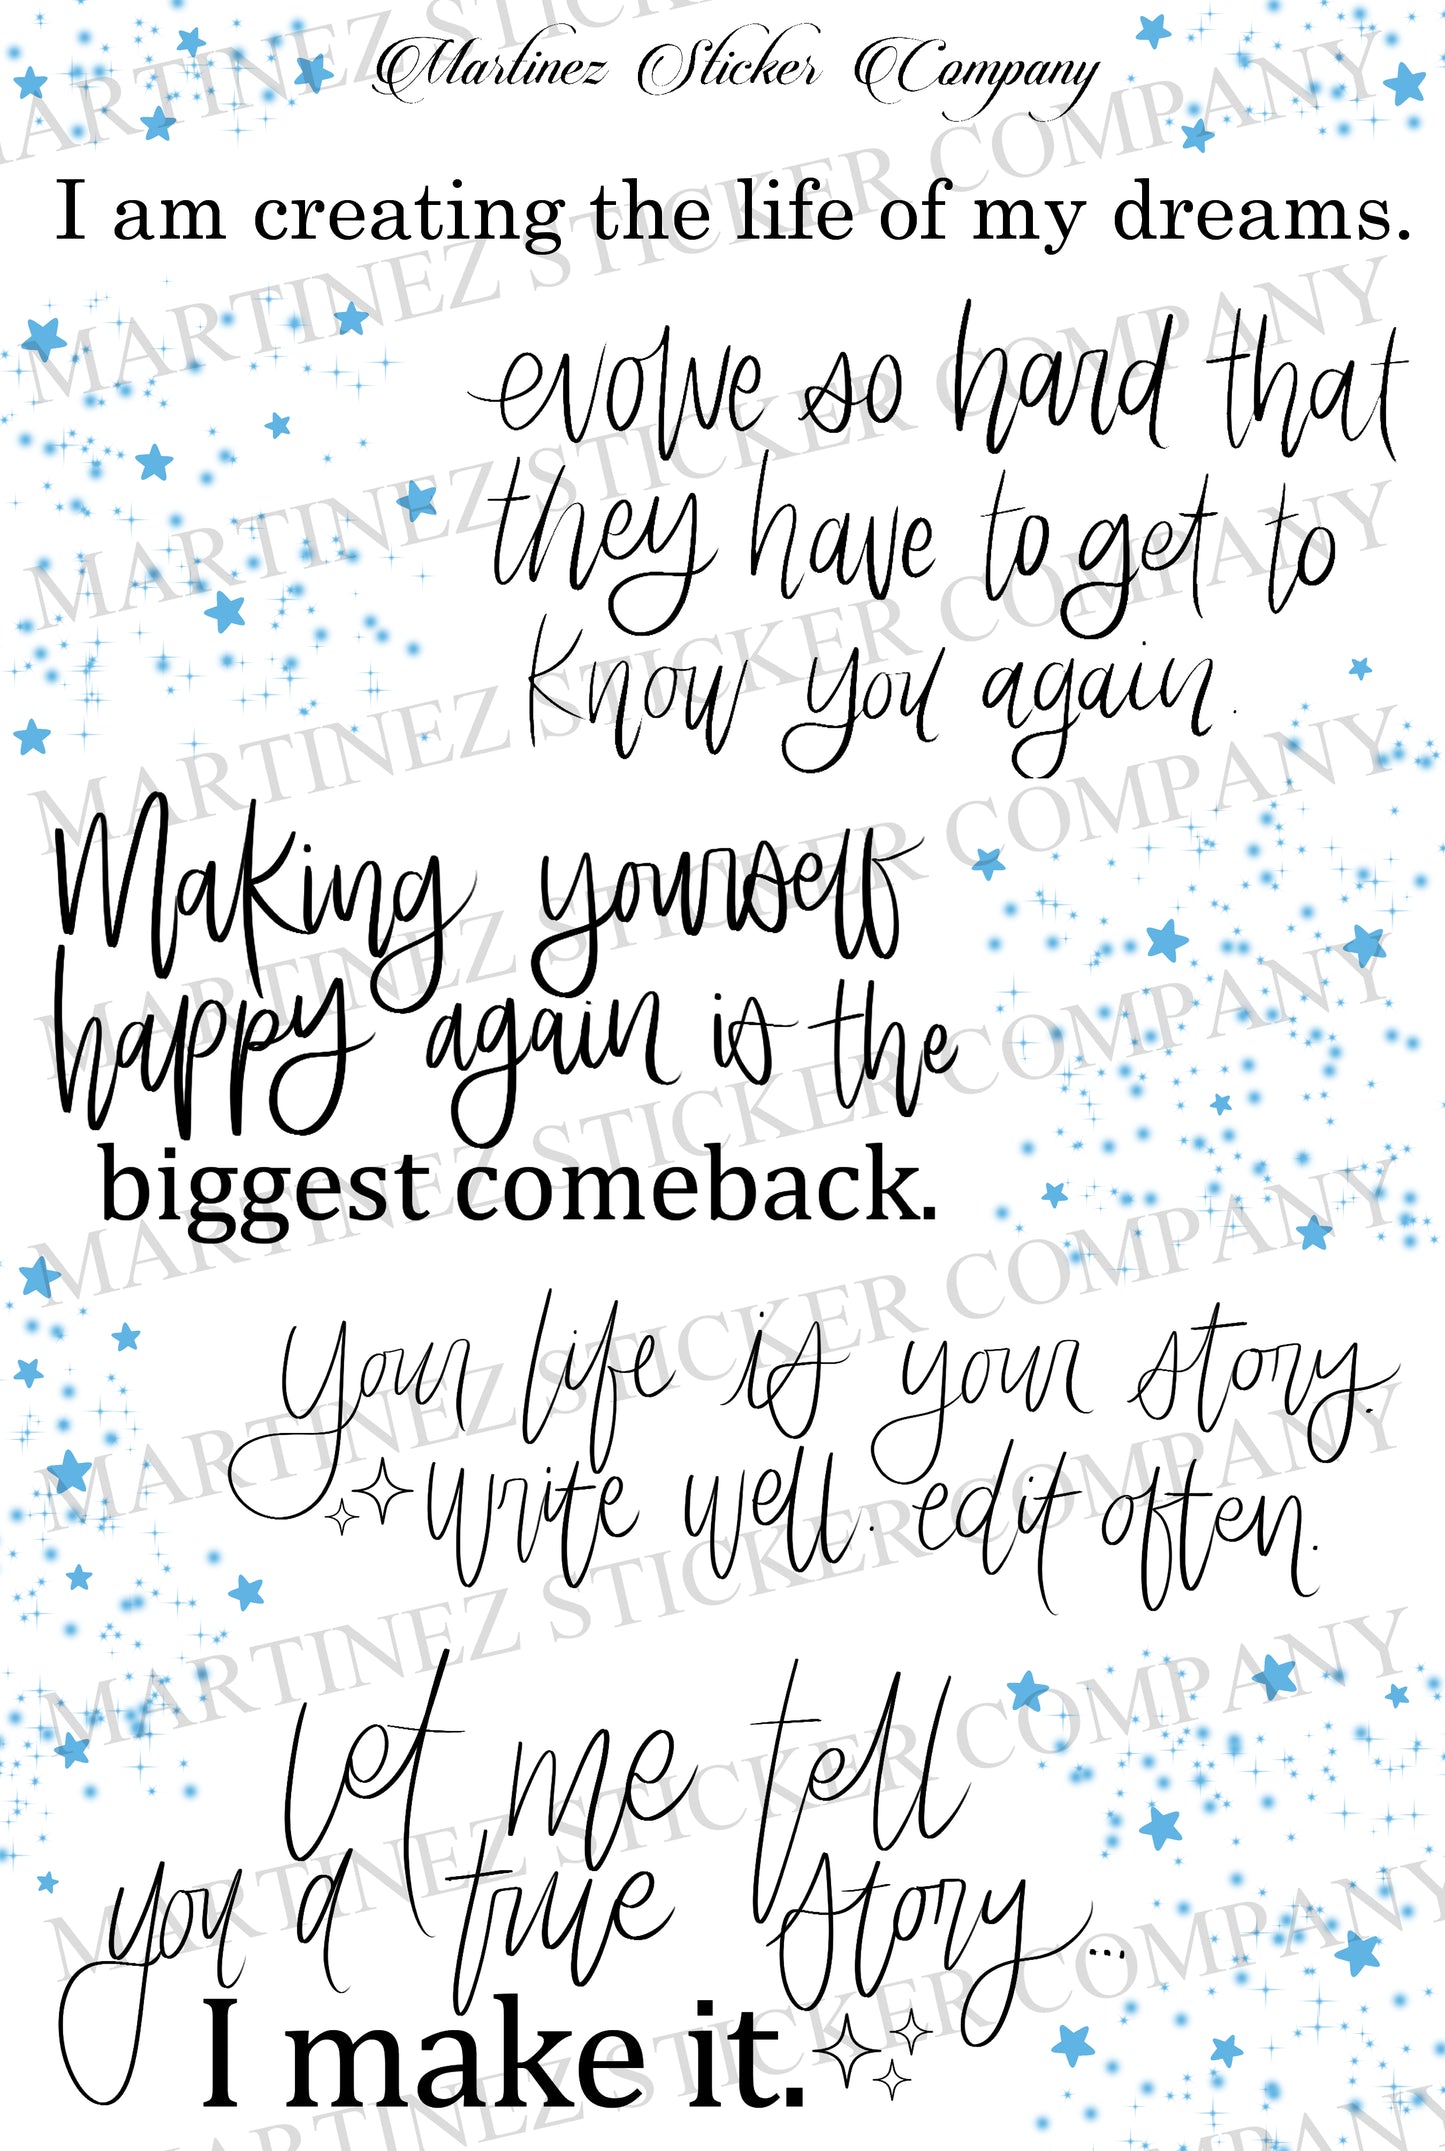 Martinez Sticker Company
I am creating the life of my dreams.
evolve so hard that
they have to get to
know you again.
Making yourself
happy again is the
biggest comeback.
your life is your story.
write well. edit often.
let me tell
you a true story...
I make it.
MARTINEZ STICKER COMPANY
MARTINEZ STICKER COMPANY
MARTINEZ STICKER COMPANY
MARTINEZ STICKER COMPANY
MARTINEZ STICKER COMPANY
MARTINEZ STICKER COMPANY
MARTINEZ STICKER COMPANY
MARTINEZ STICKER COMPANY
MARTINEZ STICKER COMPANY